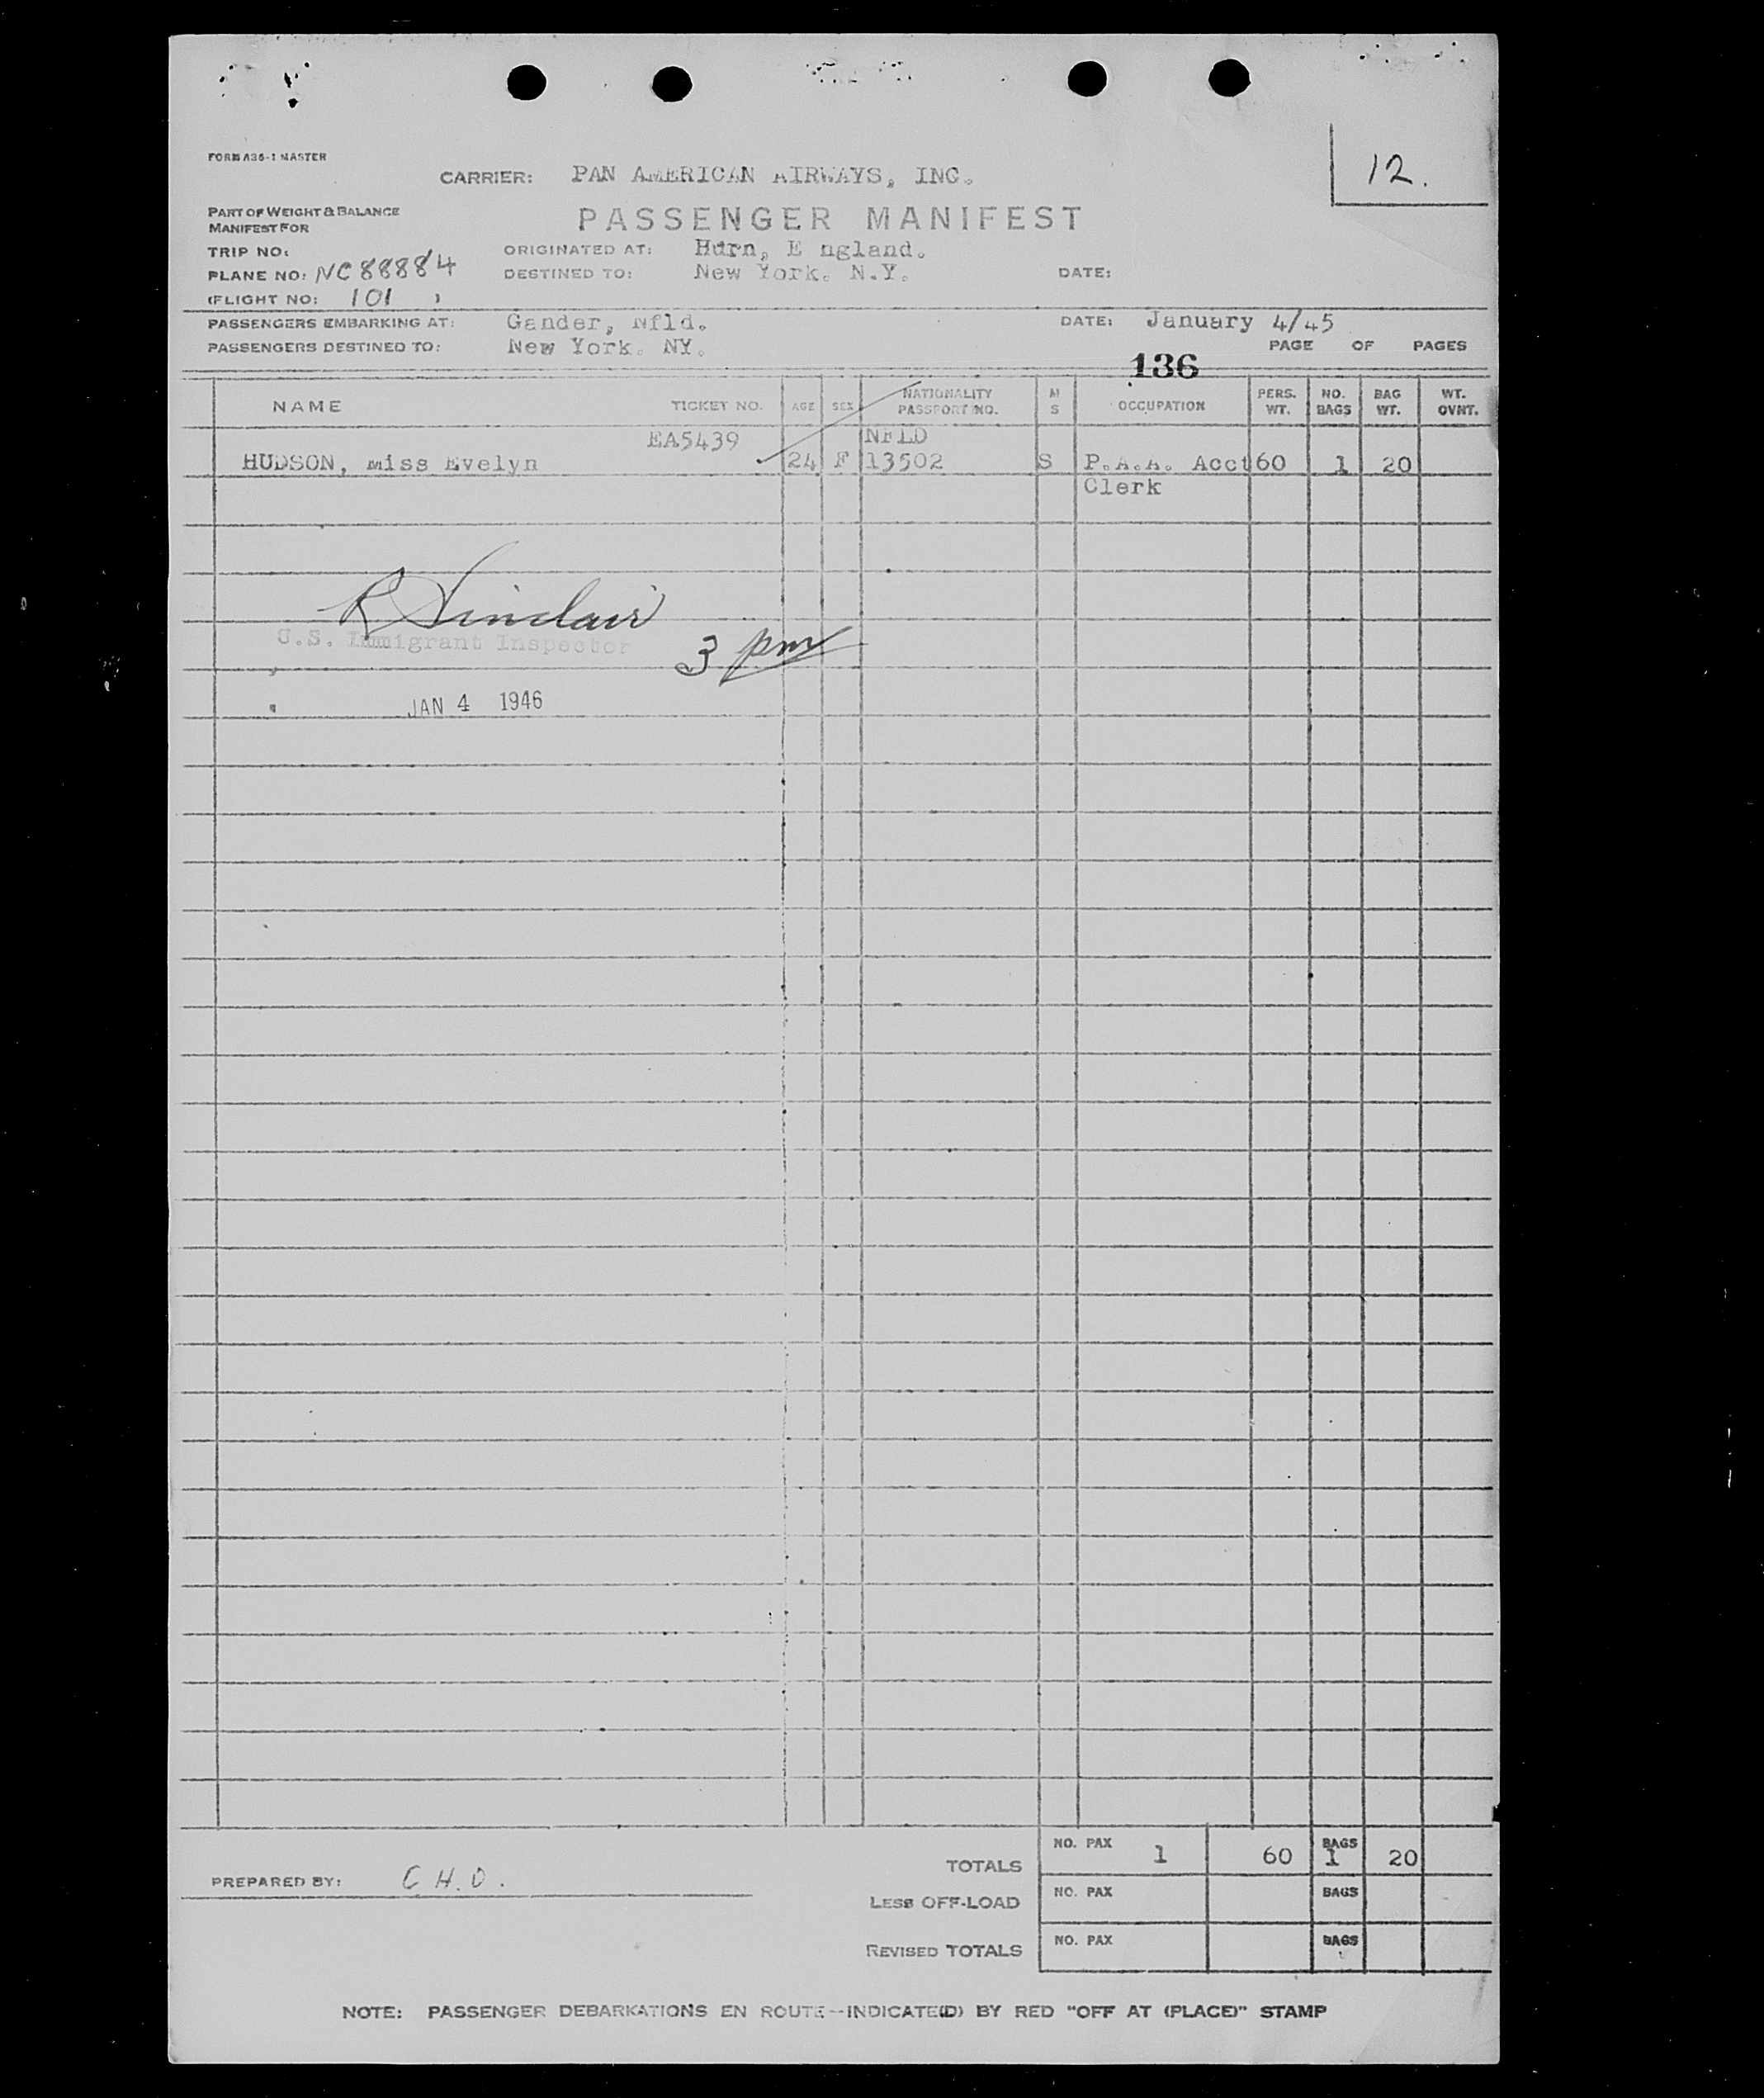 FORM A35-1 MASTER
12.
CARRIER: PAN AMERICAN AIRWAYS, INC.
PART OF WEIGHT & BALANCE
MANIFEST FOR
PASSENGER MANIFEST
TRIP NO:
ORIGINATED AT: Hurn, E ngland.
PLANE NO: NC88884
DESTINED TO: New York. N.Y.
DATE:
(FLIGHT NO: 101 )
PASSENGERS EMBARKING AT: Gander, Nfld.
DATE: January 4/45
PASSENGERS DESTINED TO: New York. NY.
PAGE OF PAGES
136
NAME TICKET NO. AGE SEX NATIONALITY PASSPORT NO. M S OCCUPATION PERS. WT. NO. BAGS BAG WT. WT. OVNT.
EA5439 NFLD
HUDSON, Miss Evelyn 24 F 13502 S P.A.A. Acct 60 1 20
Clerk
R Sinclair
U.S. Immigrant Inspector
3 pm
JAN 4 1946
TOTALS NO. PAX 1 60 BAGS 1 20
PREPARED BY: C.H.D.
LESS OFF-LOAD NO. PAX BAGS
REVISED TOTALS NO. PAX BAGS
NOTE: PASSENGER DEBARKATIONS EN ROUTE--INDICATE(D) BY RED "OFF AT (PLACE)" STAMP